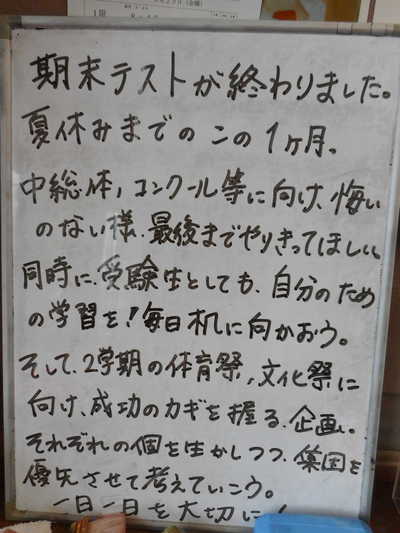 期末テストが終わりました。
夏休みまでのこの1ヶ月、
中総体、コンクール等に向け、悔い
のない様、最後までやりきってほしい。
同時に、受験生としても、自分のため
の学習を!毎日机に向かおう。
そして、2学期の体育祭、文化祭に
向け、成功のカギを握る、企画。
それぞれの個を生かしつつ、集団を
優先させて考えていこう。
一日一日を大切に!